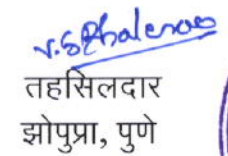 v.s.Bhalerao
तहसिलदार
झोपुप्रा, पुणे